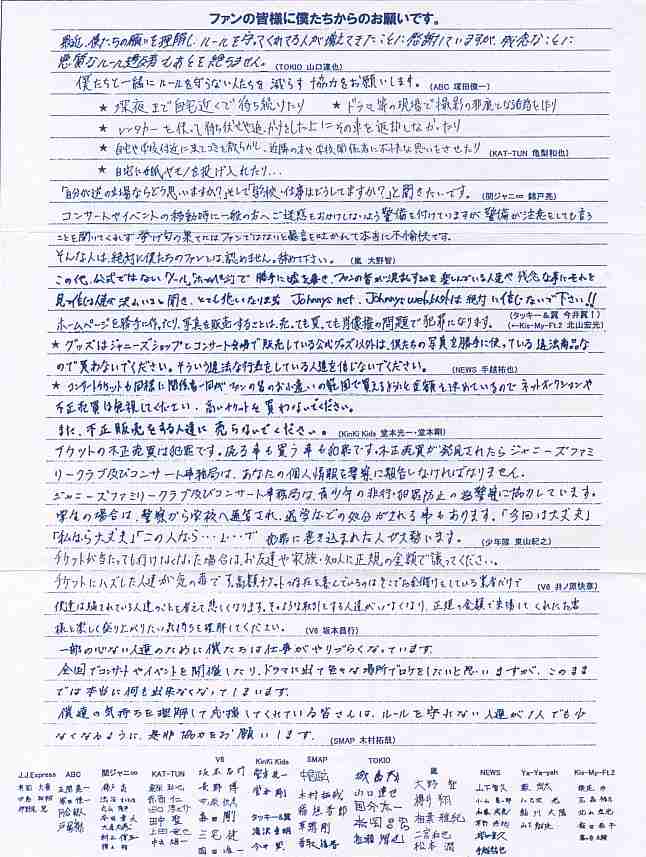 ファンの皆様に僕たちからのお願いです。
最近、僕たちの願いを理解し、ルールを守ってくれてる人が増えてきたことに感謝していますが、残念なことに
悪質なルール違反者もあとを絶ちません。(TOKIO 山口達也)
僕たちと一緒にルールを守らない人たちを減らす協力をお願いします。(ABC 塚田僚一)
★ 深夜まで自宅近くで待ち続けたり ★ ドラマ等の現場で撮影の邪魔となる
★ レンタカーを使って待ち伏せや追いかけをした上にその車を返却しなかったり
★ 自宅や学校付近に来てゴミを散らかし、近隣の方や学校関係者に不快な思いをさせたり (KAT-TUN 亀梨和也)
★ 自宅に紙やモノを投げ入れたり…
「自分が逆の立場ならどう思いますか?」そして「学校・仕事はどうしてますか?」と聞きたいです。(関ジャニ∞ 錦戸亮)
コンサートやイベントの移動時に一般の方へご迷惑をおかけしないよう警備を付けていますが警備が注意をしても言う
ことを聞いてくれず挙げ句の果てにはファンではないと暴言を吐かれて本当に不愉快です。
そんな人は、絶対に僕たちのファンとは、認めません。辞めて下さい。(嵐 大野智)
この他、公式ではない 勝手に嘘を書き、ファンの皆が混乱するのを楽しんでいる人達や残念な事にそれを
見て信じる人が沢山いると聞き、とても悲しくなります。Johnnys net、Johnnys web以外は絶対に信じないで下さい!!
(タッキー&翼 今井翼↑)
ホームページを勝手に作ったり、写真を販売することは、売っても買っても肖像権の問題で犯罪になります。(←Kis-My-Ft.2 北山宏光)
★ グッズはジャニーズショップとコンサート会場で販売している公式グッズ以外は、僕たちの写真を勝手に使っている違法商品な
ので買わないでください。そういう違法な行為をしている人達を信じないでください。(NEWS 手越祐也)
★ コンサートチケットも同様に関係者一同がファンの皆のお小遣いの範囲で買えるようにと金額を決めているのでネットオークションや
不正売買は無視してください。高いチケットを買わないでください。
また、不正販売をする人達に売らないでください。(KinKi Kids 堂本光一・堂本剛)
チケットの不正売買は犯罪です。売る事も買う事も犯罪です。不正売買が発見されたらジャニーズファミ
リークラブ及びコンサート事務局は、あなたの個人情報を警察に報告しなければなりません。
ジャニーズファミリークラブ及びコンサート事務局は、青少年の非行・犯罪防止の為警察に協力しています。
学生の場合は、警察から学校へ通告され、退学などの処分がされる事もあります。「今回は大丈夫」
「私なら大丈夫」「この人なら…」…で 犯罪に巻き込まれた人が大勢います。(少年隊 東山紀之)
チケットが当たっても行けなくなった場合は、お友達や家族・知人に正規の金額で譲ってください。
チケットにハズレた人達が 高額チケット を喜んでいるのはそこでお金儲けをしている業者だけで (V6 井ノ原快彦)
僕達は騙されている人達のことを考えて悲しくなります。そのような取引をする人達がいなくなり、正規の金額で来場してくれたお客
様と楽しく盛り上がりたい気持ちを理解してください。(V6 坂本昌行)
一部の心ない人達のために僕たちは仕事がやりづらくなっています。
全国でコンサートやイベントを開催したり、ドラマに出て色々な場所でロケをしたいと思いますが、このまま
では本当に何も出来なくなってしまいます。
僕達の気持ちを理解して応援してくれている皆さんは、ルールを守れない人達が1人でも少
なくなるように、是非協力をお願いします。(SMAP 木村拓哉)
J.J.Express
ABC
五関晃一
塚田僚一
河合郁人
戸塚祥太
関ジャニ∞
錦戸亮
渋谷すばる
丸山隆平
安田章大
大倉忠義
村上信五
横山裕
KAT-TUN
亀梨和也
赤西仁
田口淳之介
田中聖
上田竜也
中丸雄一
V6
坂本昌行
長野博
井ノ原快彦
森田剛
三宅健
岡田准一
KinKi Kids
堂本光一
堂本剛
タッキー&翼
滝沢秀明
今井翼
SMAP
中居正広
木村拓哉
稲垣吾郎
草彅剛
香取慎吾
TOKIO
城島茂
山口達也
国分太一
松岡昌宏
長瀬智也
嵐
大野智
櫻井翔
相葉雅紀
二宮和也
松本潤
NEWS
山下智久
小山慶一郎
加藤成亮
草野博紀
錦戸亮
手越祐也
Ya-Ya-yah
薮宏太
八乙女光
鮎川太陽
山下翔央
Kis-My-Ft.2